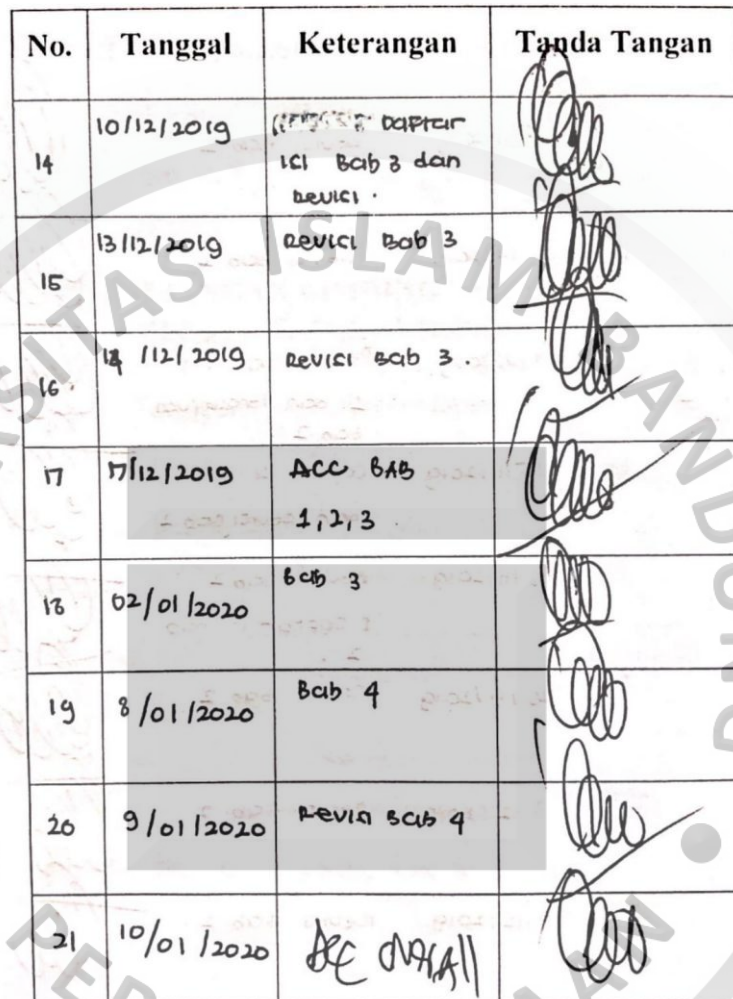 No. Tanggal Keterangan Tanda Tangan
14 10/12/2019 Daftar
isi Bab 3 dan
Revisi.
15 13/12/2019 Revisi Bab 3
16. /12/2019 Revisi Bab 3.
17 17/12/2019 ACC BAB
1, 2, 3
18 02/01/2020 Bab 3
19 8/01/2020 Bab 4
20 9/01/2020 Revisi Bab 4
21 10/01/2020 Acc
SITAS ISLAM BANDUNG
PER AN